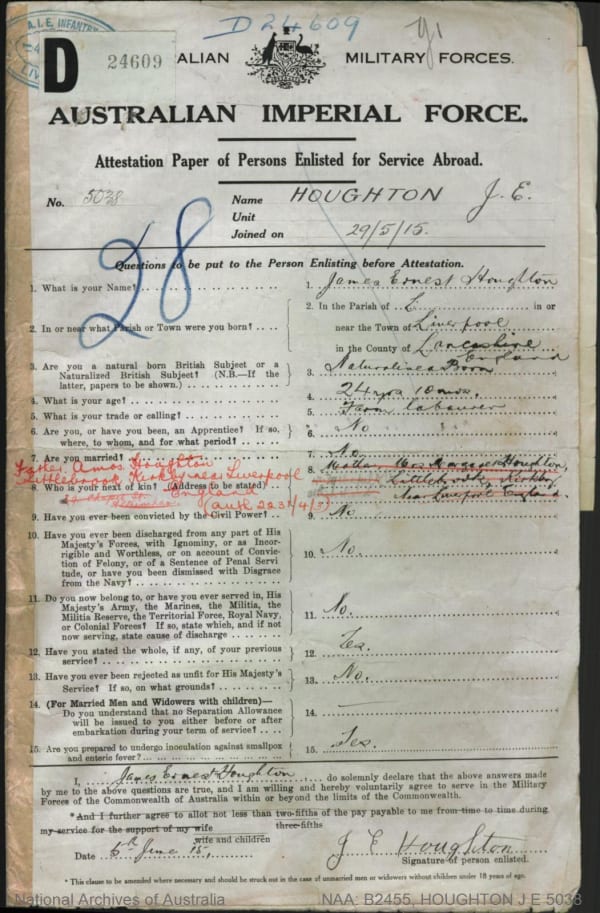 D24609
A.I.F. INFANTRY
D
24609
ALIAN MILITARY FORCES.
AUSTRALIAN IMPERIAL FORCE.
Attestation Paper of Persons Enlisted for Service Abroad.
No. 5038
Name HOUGHTON J. E.
Unit
Joined on 29/5/15.
28
Questions to be put to the Person Enlisting before Attestation.
1. What is your Name? 1. James Ernest Houghton
2. In or near what Parish or Town were you born? 2. In the Parish of in or
near the Town of Liverpool
in the County of Lancashire
England
3. Are you a natural born British Subject or a
Naturalized British Subject? (N.B.—If the
latter, papers to be shown.) 3. Natural Born
4. What is your age? 4. 24 yrs 10 mos.
5. What is your trade or calling? 5. Farm labourer
6. Are you, or have you been, an Apprentice? If so,
where, to whom, and for what period? 6. No
7. Are you married? 7. No.
Father Amos Houghton
Littlebrook Kirkby near Liverpool
England
8. Who is your next of kin? (Address to be stated) 8. Mother Mrs Margaret Houghton,
Littlebrook, Kirkby
Near Liverpool England.
9. Have you ever been convicted by the Civil Power? 9. No.
10. Have you ever been discharged from any part of His
Majesty's Forces, with Ignominy, or as Incor-
rigible and Worthless, or on account of Convic-
tion of Felony, or of a Sentence of Penal Servi
tude, or have you been dismissed with Disgrace
from the Navy? 10. No.
11. Do you now belong to, or have you ever served in, His
Majesty's Army, the Marines, the Militia, the
Militia Reserve, the Territorial Force, Royal Navy,
or Colonial Forces? If so, state which, and if not
now serving, state cause of discharge 11. No.
12. Have you stated the whole, if any, of your previous
service? 12. Yes.
13. Have you ever been rejected as unfit for His Majesty's
Service? If so, on what grounds? 13. No.
14. (For Married Men and Widowers with children)—
Do you understand that no Separation Allowance
will be issued to you either before or after
embarkation during your term of service? 14. —
15. Are you prepared to undergo inoculation against smallpox
and enteric fever? 15. Yes.
I, James Ernest Houghton do solemnly declare that the above answers made
by me to the above questions are true, and I am willing and hereby voluntarily agree to serve in the Military
Forces of the Commonwealth of Australia within or beyond the limits of the Commonwealth.
*And I further agree to allot not less than two-fifths of the pay payable to me from time to time during
three-fifths
my service for the support of my wife
wife and children
Date 5th June 15. J E Houghton
Signature of person enlisted.
* This clause to be amended where necessary and should be struck out in the case of unmarried men or widowers without children under 18 years of age.
National Archives of Australia NAA: B2455, HOUGHTON J E 5038